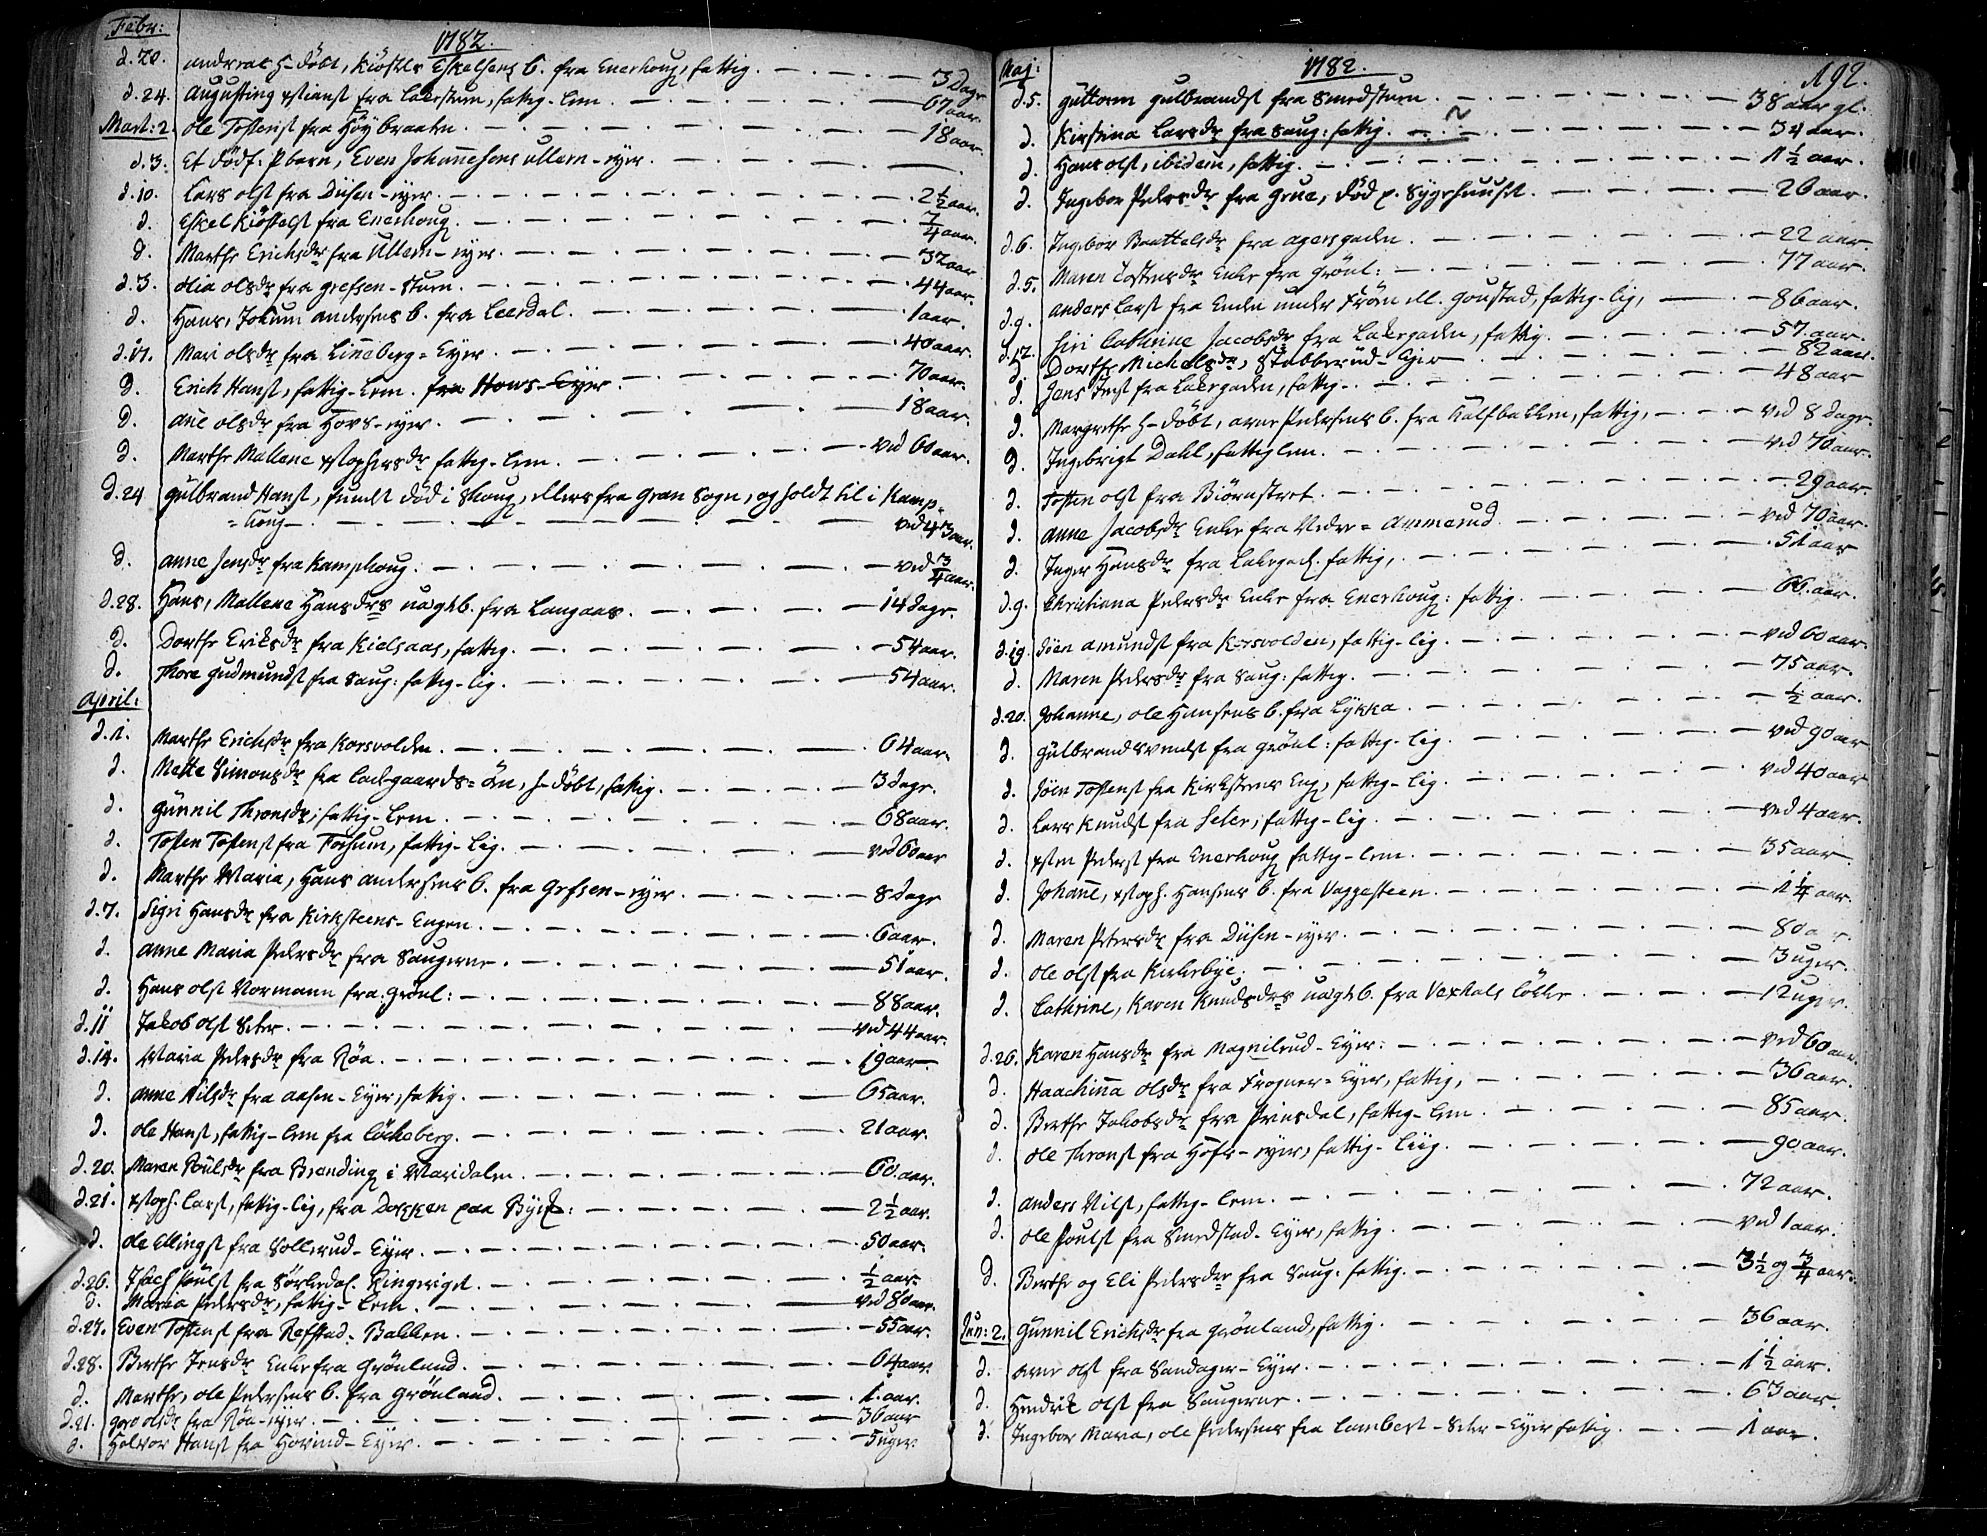 Febr:
1782.
d.20. Andreas H-döbt, Kiöstels Eskelsens b. fra Enerhoug, fattig. 3 Dage
d.24. Augustinq xstianst fra Lakestuen, fattig-lem 67 aar.
Mart: 2. Ole Tostenst fra Höybraaten. 18 aar.
d.3. Et dödf: Pbarn, Even Johannesens Ullern-eyer.
d.10. Lars olst fra Diisen-eyer 2 1/2 aar.
d. Eskel Kiöstelst fra Enerhoug. 7/4 aar.
d. Marthe Erichsdr fra Ullern-eyer. 32 aar
d.3. Olia olsdr fra Grefsen-stuen. 44 aar.
d. Hans, Jokum Andersens b. fra Leerdal. 1 aar.
d.17. Mari olsdr fra Linneberg-Eyer. 40 aar.
D. Erich Hanst, fattig-Lem. fra Hows-Eyer. 70 aar.
D. Ane olsdr fra Hovs-eyer. 18 aar.
D. Marthe Mallene xstophersdr fattig-lem. ved 60 aar.
D.24 Gulbrand Hanst, funden död i Skoug, ellers fra Gran Sogn, og holdt til i Kamp-
=houg. ved 43 aar.
d. Anne Jensdr fra Kamphoug. ved 3/4 aar.
d.28. Hans, Mallene Hansdrs uægteb. fra Langaas. 14 dage.
d. Dorthe Eriksdr fra Kielsaas, fattig. 54 aar.
d. Thore Gudmundst fra Saug: fattig-lig. 54 aar.
April:
d.1. Marthe Erichsdr fra Korsvolden. 64 aar.
d. Mette Simonsdr fra Ladegaards-öen, h-döbt, fattig. 3 dage.
d. Gunnil Thronsdr, fattig-Lem. 68 aar.
d. Tosten Tostenst fra Fossum, fattig-Lig. ved 60 aar
d. Marthe Maria, Hans Andersens b. fra Grefsen-eyer. 8 dage
d.7. Sigri Hansdr fra Kirksteens-Engen. 6 aar.
d. Anne Maria Pedersdr fra Saugerne. 51 aar.
d. Hans olst Normann fra Grönl: 88 aar.
d.11 Jakob olst Seter. ved 44 aar.
d.14. Maria Pedersdr fra Röa. 19 aar.
d. Anne Nilsdr fra Aasen-Eyer, fattig. 65 aar.
d. Ole Hanst, fattig-lem fra Löckeberg. 21 aar.
d.20. Maren Poulsdr fra Brending i Maridalen. 60. aar.
d.21. xstoph. Larst, fattig-lig, fra Dorkken paa Byef: 2 1/2 aar.
d. Ole Ellingst fra Sollerud-Eyer. 50 aar.
d.26. Isach Poulst fra Sörkedal. Ringeriget. 1/2 aar.
d. Maria Pedersdr, fattig-Lem. ved 80 aar.
d.27. Even Tostenst fra Refstad-Bakken. 55 aar.
d.28. Berthe Jensdr Enke fra Grönland. 64 aar.
d. Marthe, Ole Pedersens b. fra Grönland. 1. aar.
d.21. Goro olsdr fra Röa-eyer. 36 aar
d. Halvor Hanst fra Hovind-Eyer. 5 uger.
Maj:
1782.
192.
d.5. Guttorm Gulbrandst fra Smedstuen. 38 aar gl.
d. Kirstina Larsdr fra Saug: fattig. 34 aar.
d. Hans olst, ibidem, fattig. 1 1/2 aar.
d. Ingebor Pedersdr fra Grue, död p. Sygehuuset. 26 aar.
d.6. Ingebor Baattelsdr fra Agersgaden. 22 aar.
d.5. Maren Tostensdr Enke fra Grönl: 77 aar.
d.9. Anders Larst fra Enden under Fröen ell. Goustad, fattig-lig, 86 aar.
d.12. Siri Cathrine Jacobsdr fra Lakegaden, fattig. 57 aar.
D. Dorthe Michelsdr, Stubberud-Eyer 82 aar.
d. Jens Jenst fra Lakegaden, fattig. 48 aar
d. Margrethe h-döbt, Arne Pedersens b. fra Kalfbakken, fattig, ved 8 dage.
D. Ingebrigt Dahl, fattiglem. ved 70 aar.
d. Tosten olst fra Biörnstret. 29 aar.
d. Anne Jacobsdr Enke fra Nedre-Ammerud. ved 70 aar.
d. Inger Hansdr fra Lakegad. fattig, 51 aar
d.9. Christiana Pedersdr Enke fra Enerhoug: fattig. 66. aar.
d.19. Jöen Amundst fra Korsvolden, fattig-lig. ved 60 aar.
d. Maren Pedersdr fra Saug: fattig. 75 aar.
d.20. Johanne, ole Hansens b. fra Lykka. 1/2 aar.
d. Gulbrand Svendst fra Grönl: fattig-lig. ved 90 aar
d. Jöen Tostenst fra Kirksteens Eng, fattig-lig. ved 40 aar
d. Lars Knudst fra Seter, fattig-lig. ved 4 aar.
d. xsten Pederst fra Enerhoug fattig-lem. 35 aar.
d. Johanne, xstoph. Hansens b. fra Vaggesteen. 1 1/4 aar.
d. Maren Petersdr fra Diisen-eyer. 80 aar.
d. Ole olst fra Kirkebye. 3 uger.
d. Cathrine, Karen Knudsdrs uægteb. fra Vexhals Löcke 12 uger.
d.26. Karen Hansdr fra Magnilrud-Eyer. ved 60 aar.
d. Haachinna olsdr fra Frogner-Eyer, fattig, 36 aar.
d. Berthe Jakobsdr fra Prinsdal, fattig-lem. 85 aar.
d. Ole Thronst fra Hofs-eyer, fattig-Liig. 90 aar.
d. Anders Nilst, fattig-lem. 72 aar.
d. Ole Poulst fra Smedstad-Eyer, fattig. ved 1 aar.
d. Berthe og Eli Pedersdr fra Saug: fattig. 3 1/2 og 3/4 aar.
Jun: 2. Gunnil Erichsdr fra Grönland, fattig. 36 aar.
d. Arne olst fra Sandager-Eyer. 1 1/2 aar.
d. Hendrik olst fra Saugerne. 63 aar.
d. Ingebor Maria, ole Pedersens fra Lambert-Seter-Eyer fattig. 1 aar.